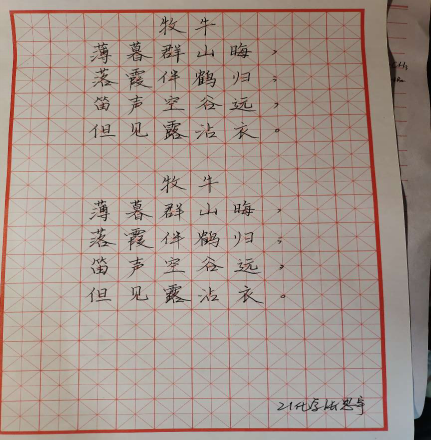 牧牛
薄暮群山晦，
落霞伴鹤归；
笛声空谷远，
但见露沾衣。
牧牛
薄暮群山晦，
落霞伴鹤归；
笛声空谷远，
但见露沾衣。